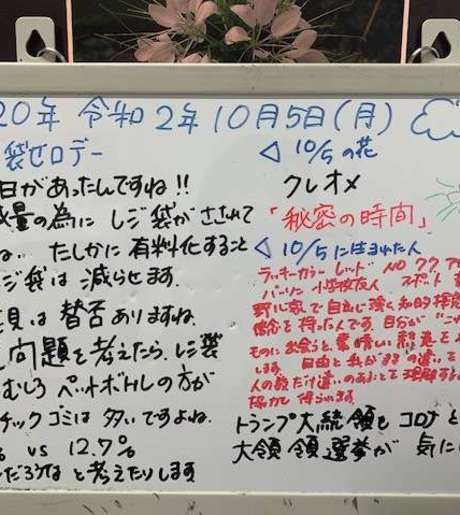 20年 令和2年10月5日(月)
袋ゼロデー
日があったんですね!!
減量の為に レジ袋が
ね... たしかに 有料化すること
ジ袋は 減らせます.
見は 賛否 ありますね.
問題を考えたら、レジ袋
むしろ ペットボトルの方が
チックゴミは 多いですよね.
% vs 12.7%
だろうな と考えたりします
◁ 10/5 の花
クレオメ
「秘密の時間」
◁ 10/5に生まれた人
ラッキーカラー レッド NO 77
パーソン 小学校友人 スポット
野心家で自立心強く 知的
信念を持った人です. 自分が
ものに出会うと、素晴しい
します. 自由と 違いを
人の数だけ違いのあることを理解する
協力も得られます.
トランプ大統領も コロナと
大領領選挙が 気に